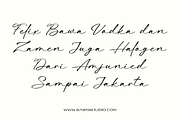 Felix Bawa Vodka dan
Zamen Juga Halogen
Dari Amjunied
Sampai Jakarta